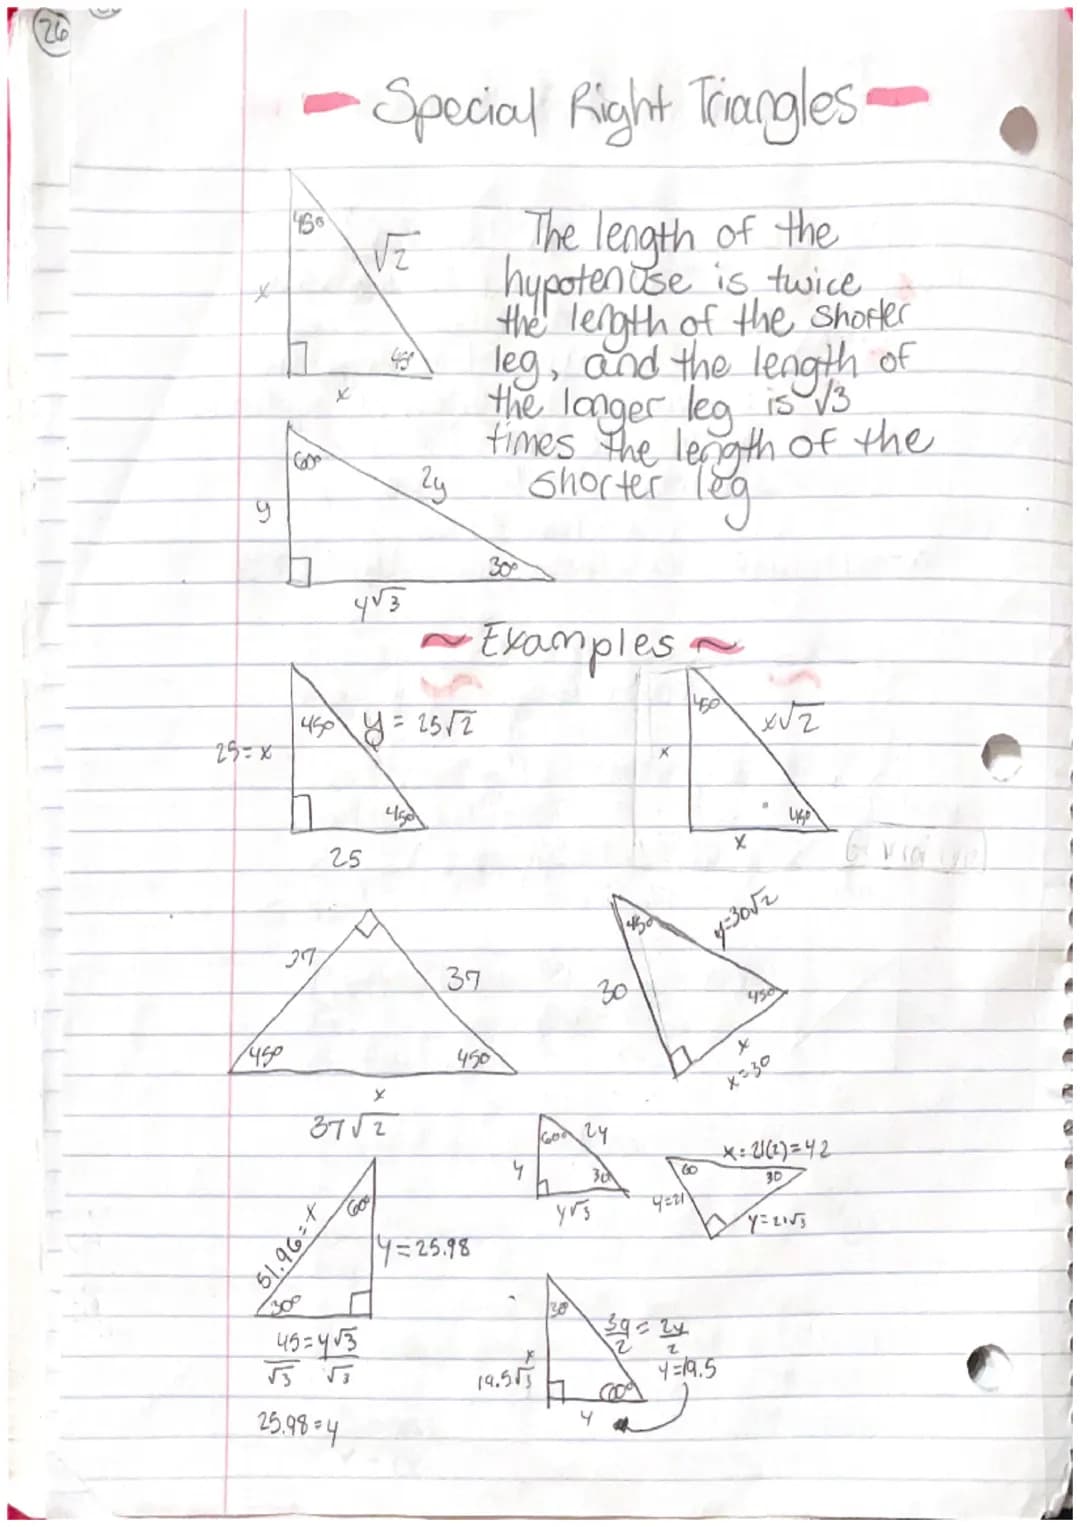 26
Special Right Triangles
45°
√2
x
45°
x
The length of the
hypotenuse is twice
the length of the shorter
leg, and the length of
the longer leg is √3
times the length of the
shorter leg
60°
2y
y
30°
y√3
~ Examples ~
45°
y = 25√2
25=x
45°
25
45°
x√2
x
45°
x
37
37
45°
45°
x
37√2
45°
y=30√2
30
45°
x
x=30
60°
51.96=x
y=25.98
30°
45=y√3
√3 √3
25.98=y
60° 2y
y
30
y√3
x=21(2)=42
60
30
y=21
y=21√3
30
39 = 2y
2 2
x
y=19.5
19.5√3
60°
y